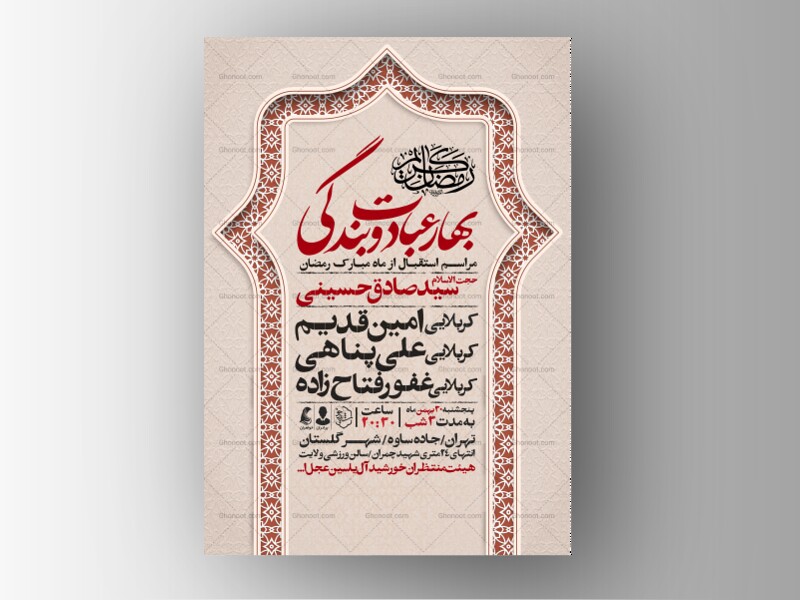 رمضان کریم
بهار عبادت و بندگی
مراسم استقبال از ماه مبارک رمضان
حجت الاسلام سید صادق حسینی
کربلایی امین قدیم
کربلایی علی پناهی
کربلایی غفور فتاح زاده
پنجشنبه ۳۰ بهمن ماه
به مدت ۳ شب
ساعت
۲۰:۳۰
تهران/جاده ساوه/شهر گلستان
انتهای ۲۴ متری شهید چمران/سالن ورزشی ولایت
هیئت منتظران خورشید آل یاسین عجل ا...
Ghonoot.com